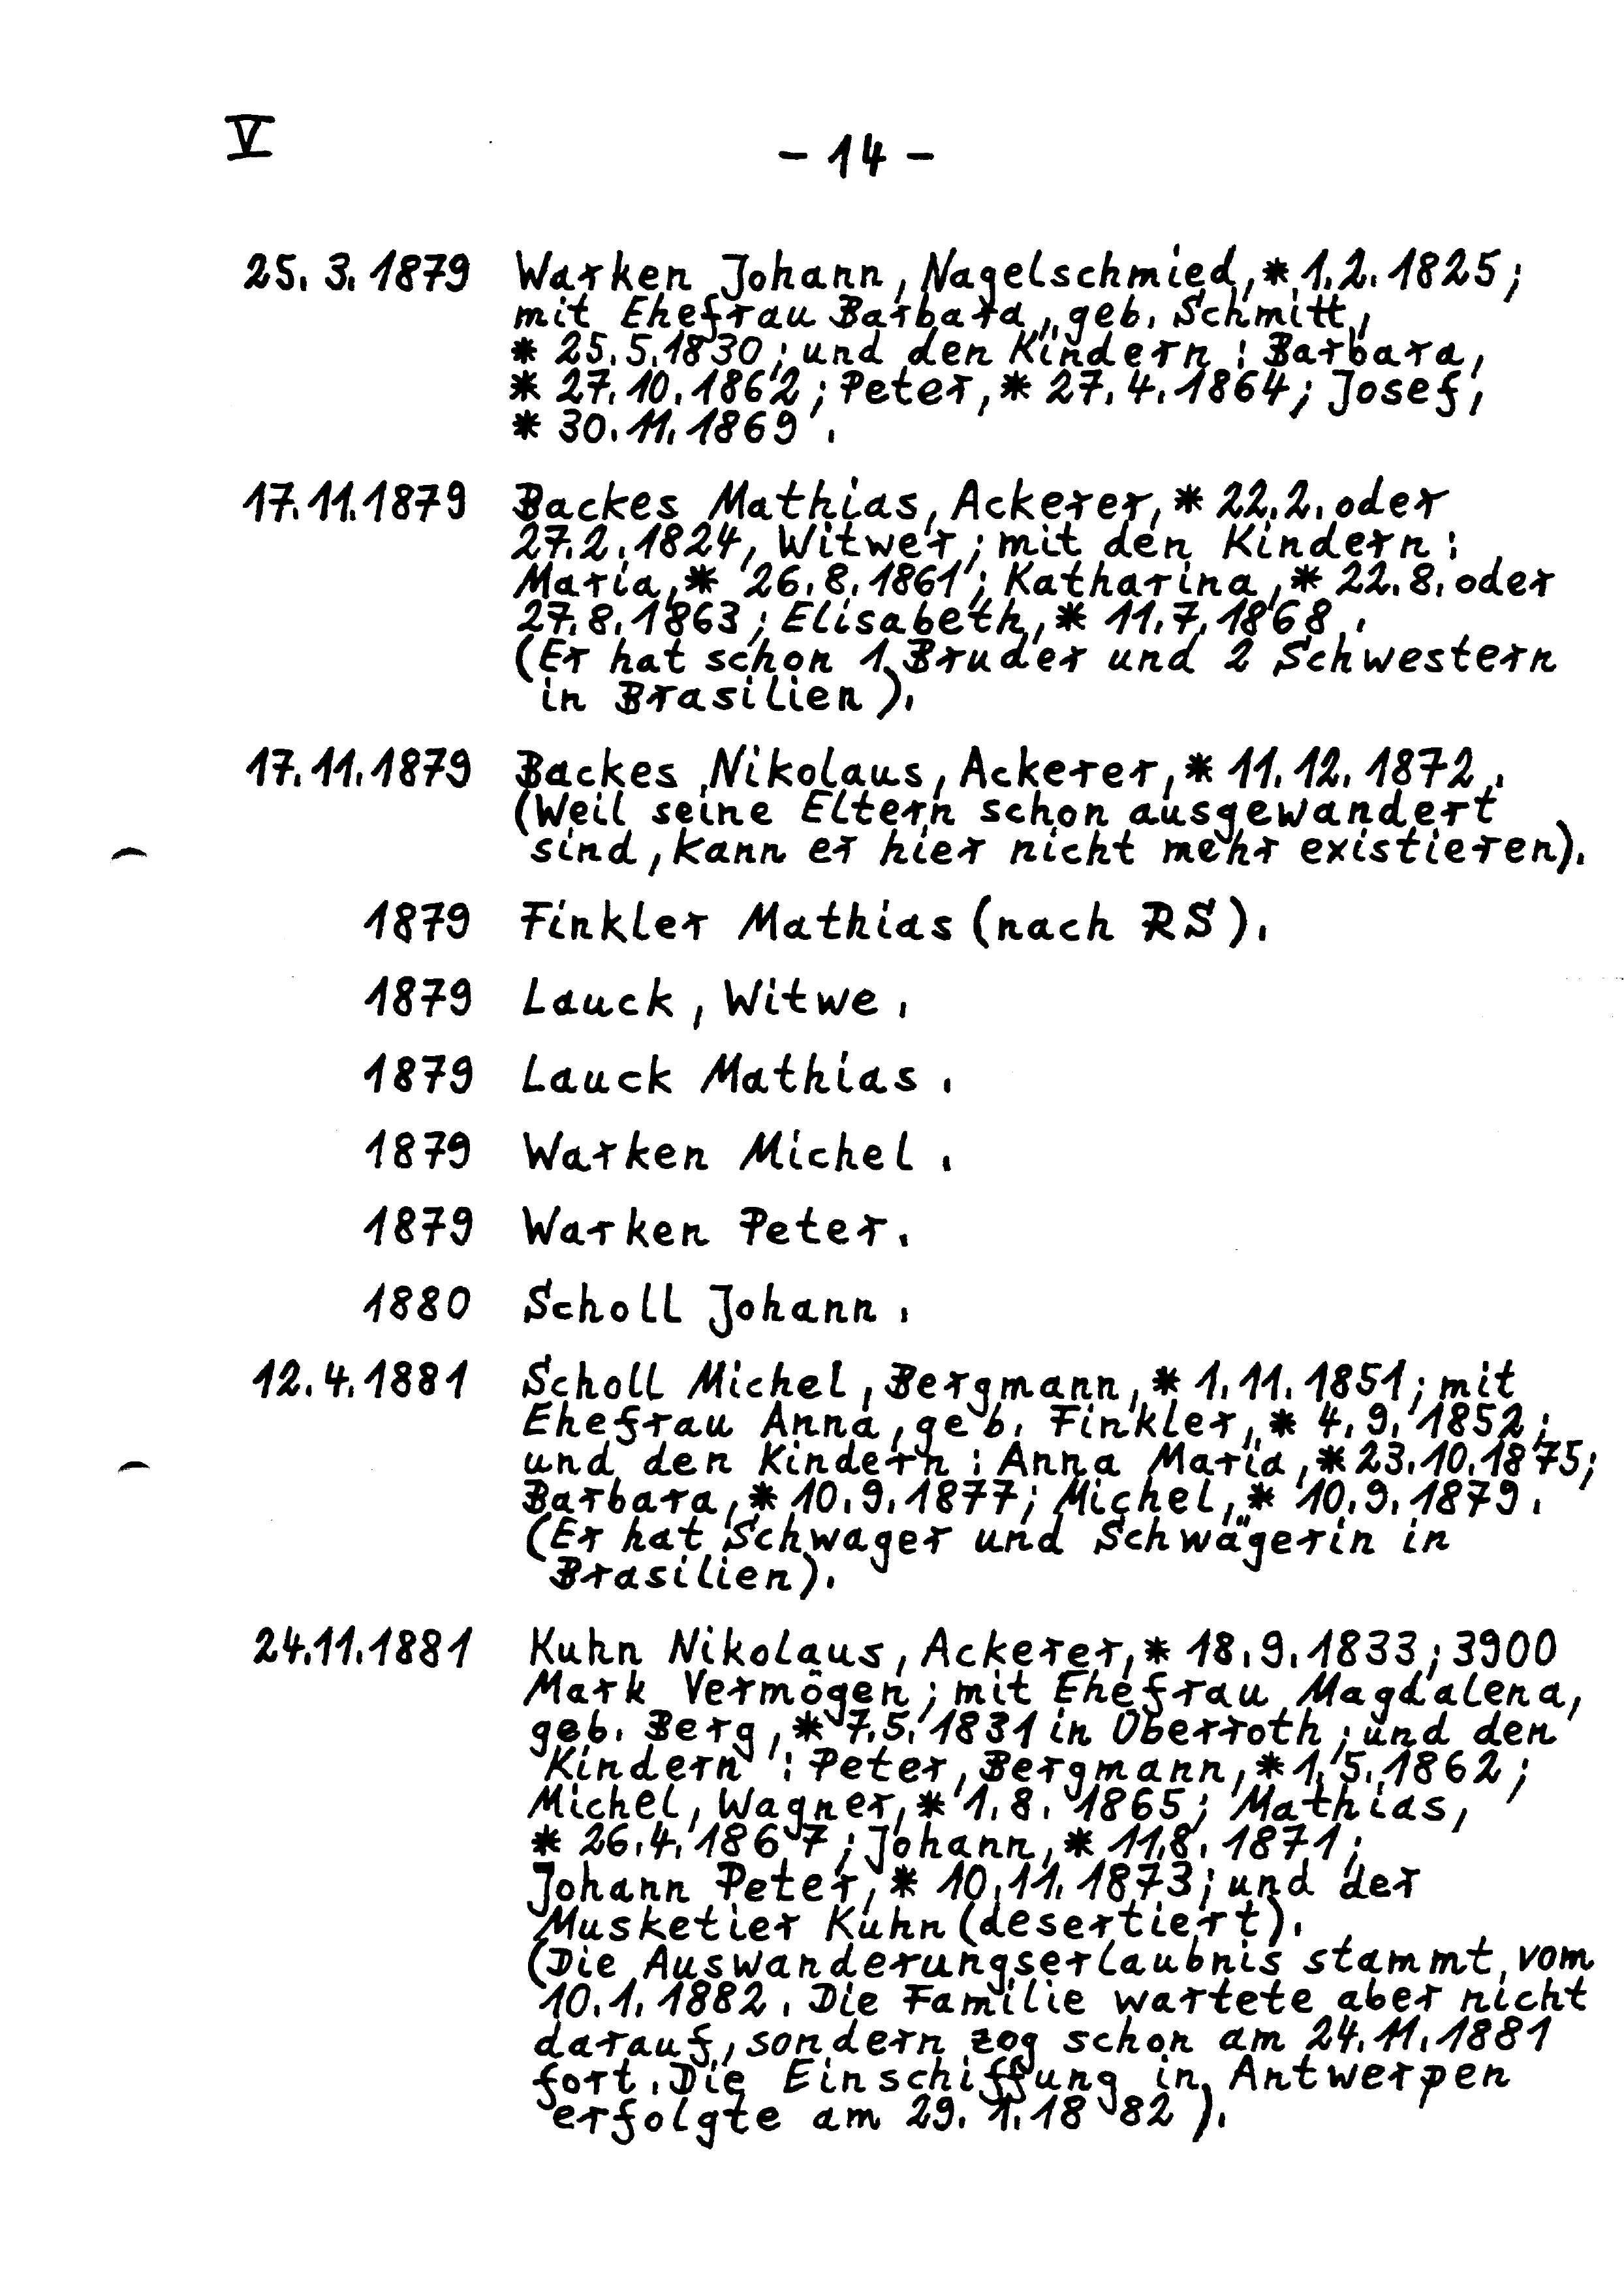 V
- 14 -
25. 3. 1879 Warken Johann, Nagelschmied, * 1.2. 1825;
mit Ehefrau Barbara, geb. Schmitt,
* 25.5.1830; und den Kindern: Barbara,
* 27.10.1862; Peter, * 27.4.1864; Josef,
* 30.11.1869.
17.11.1879 Backes Mathias, Ackerer, * 22.2. oder
27.2.1824, Witwer; mit den Kindern:
Maria, * 26.8.1861; Katharina, * 22.8. oder
27.8.1863; Elisabeth, * 11.7.1868.
(Er hat schon 1 Bruder und 2 Schwestern
in Brasilien).
17.11.1879 Backes Nikolaus, Ackerer, * 11.12.1872.
(Weil seine Eltern schon ausgewandert
sind, kann er hier nicht mehr existieren).
1879 Finkler Mathias (nach RS).
1879 Lauck, Witwe.
1879 Lauck Mathias.
1879 Warken Michel.
1879 Warken Peter.
1880 Scholl Johann.
12.4.1881 Scholl Michel, Bergmann, * 1.11.1851; mit
Ehefrau Anna, geb. Finkler, * 4.9.1852;
und den Kindern: Anna Maria, * 23.10.1875;
Barbara, * 10.9.1877; Michel, * 10.9.1879.
(Er hat Schwager und Schwägerin in
Brasilien).
24.11.1881 Kuhn Nikolaus, Ackerer, * 18.9.1833; 3900
Mark Vermögen; mit Ehefrau Magdalena,
geb. Berg, * 7.5.1831 in Oberroth; und den
Kindern: Peter, Bergmann, * 1.5.1862;
Michel, Wagner, * 1.8.1865; Mathias,
* 26.4.1867; Johann, * 11.8.1871;
Johann Peter, * 10.11.1873; und der
Musketier Kuhn (desertiert).
(Die Auswanderungserlaubnis stammt vom
10.1.1882. Die Familie wartete aber nicht
darauf, sondern zog schon am 24.11.1881
fort. Die Einschiffung in Antwerpen
erfolgte am 29.1.1882).